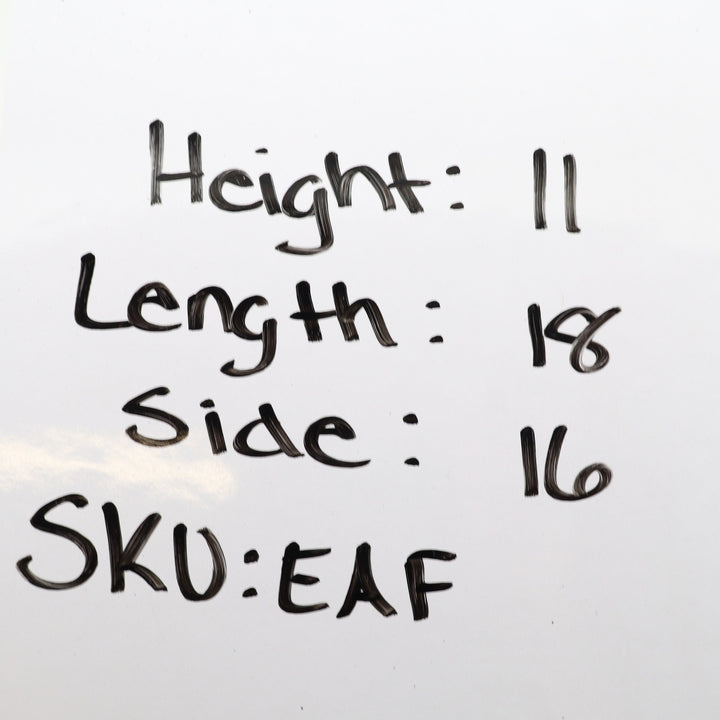 Height: 11
Length: 18
Side: 16
SKU: EAF